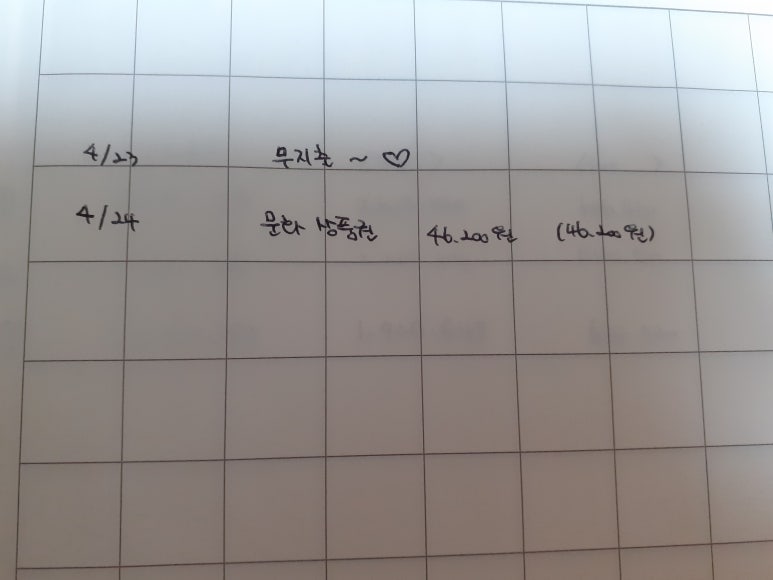 4/23 무지출 ~ ♡
4/24 문화상품권 46.200원 (46.200원)